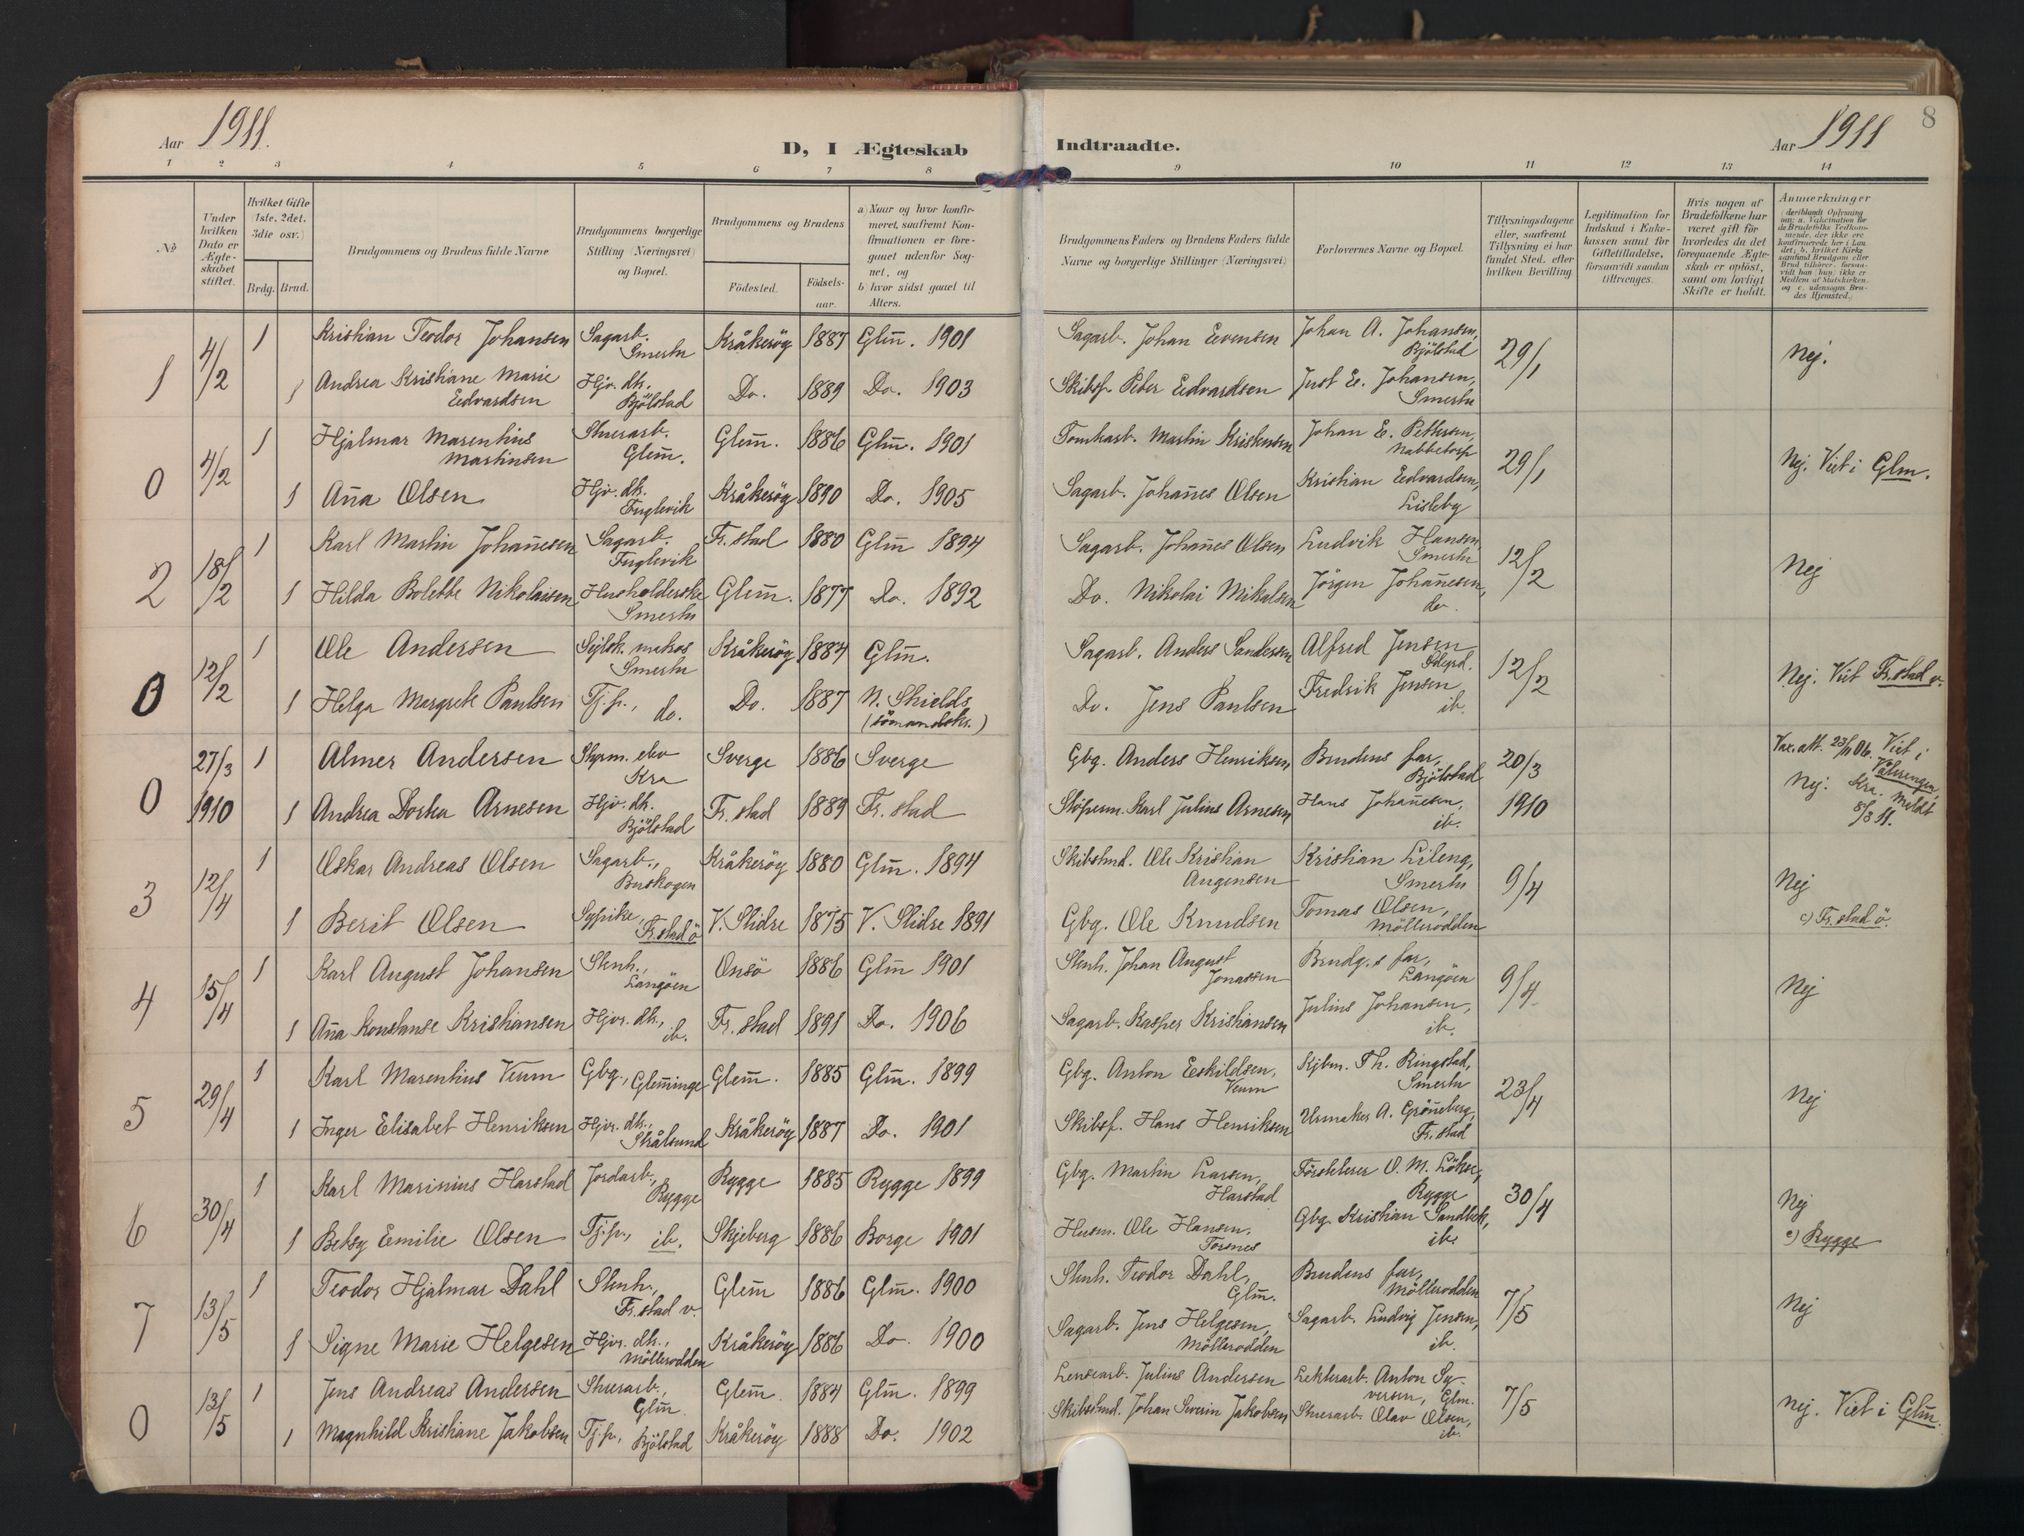 8
Aar 1911.
D, I Ægteskab
Indtraadte.
Aar 1911
1 2 3 4 5 6 7 8 9 10 11 12 13 14
No
Under hvilken Dato er Ægteskabet stiftet.
Hvilket Gifte (1ste, 2det, 3die osv.)
Brdg. Brud.
Brudgommens og Brudens fulde Navne
Brudgommens borgerlige Stilling (Næringsvei) og Bopæl.
Brudgommens og Brudens
Födested.
Födselsaar.
a) Naar og hvor konfirmeret, saafremt Konfirmationen er foregaaet udenfor Sognet, og
b) hvor sidst gaaet til Alters.
Brudgommens Faders og Brudens Faders fulde Navne og borgerlige Stillinger (Næringsvei)
Forlovernes Navne og Bopæl.
Tillysningsdagene eller, saafremt Tillysning ei har fundet Sted, efter hvilken Bevilling
Legitimation for Indskud i Enkekassen samt for Giftetilladelse, forsaavidt saadan tiltrænges.
Hvis nogen af Brudefolkene har været gift för hvorledes da det foregaaende Ægteskab er oplöst, samt om lovligt Skifte er holdt.
Anmærkninger
1 4/2 1 Kristian Teodor Johansen Sagarb. Smertu Kråkeröy 1887 Glm̄. 1901 Sagarb. Johan Evensen Johan A. Johansen, Bjölstad 29/1 Nej.
1 Andrea Kristiane Marie Edvardsen Hjv. dtr. Bjölstad Do. 1889 Do. 1903 Skibsf. Peder Edvardsen Just E. Johansen, Smertu
0 4/2 1 Hjalmar Marentius Martinsen Stuerarb. Glem̄. Glem̄. 1886 Glm̄. 1901 Tomtearb. Martin Kristensen Johan E. Pettersen, Nabbetorp 29/1 Nej. Viet i Glm.
1 An̄a Olsen Hjv. dtr. Fuglevik Kråkeröy 1890 Do. 1905 Sagarb. Johan̄es Olsen Kristian Edvardsen, Lisleby
2 18/2 1 Karl Martin Johan̄esen Sagarb. Fuglevik Fr.stad 1880 Glm̄ 1894 Sagarb. Johan̄es Olsen Ludvik Hansen, Smertu 12/2 Nej
1 Hilda Bolette Nikolaisen Husholderske Smertu Glem̄. 1877 Do. 1892 Do. Nikolai Mikalsen Jörgen Johan̄esen, do.
0 12/2 1 Ole Andersen Smertu Kråkeröy 1884 Glm̄. Sagarb. Anders Sandersen Alfred Jensen, 12/2 Nej. Viet Fr.stad v.
1 Helga Margrete Paulsen Tj.p., do. Do. 1887 N. Shields (sömandsk.) Do. Jens Paulsen Fredrik Jensen ib.
0 27/3 1910 1 Almer Andersen Styrm. elev Kra Sverge 1886 Sverge Gbg. Anders Henriksen Brudens far, Bjölstad 20/3 1910 Vax.att. 23/11 06. Viet i Vålerengen, Kra. Meldt 8/3 11. Nej.
1 Andrea Dorthea Arnesen Hjv. dtr. Bjölstad Fr.stad 1889 Fr.stad Stöperm. Karl Julius Arnesen Hans Johan̄esen, ib.
3 12/4 1 Oskar Andreas Olsen Sagarb., Buskogen Kråkeröy 1880 Glm̄. 1894 Skibstmd. Ole Kristian Augensen Kristian Lileng, Smertu 9/4 Nej
1 Berit Olsen Sypike, Fr.stad ö V. Slidre 1875 V. Slidre 1891 Gbg. Ole Knudsen Tomas Olsen, Möllerodden c) Fr.stad ö.
4 15/4 1 Karl August Johansen Stenh., Langöen Onsö 1886 Glm̄ 1901 Stenh. Johan August Jonassen Brudg.s far, Langöen 9/4 Nej
1 An̄a Konstanse Kristiansen Hjv. dtr., ib. Fr.stad 1891 Do. 1906 Sagarb. Kasper Kristiansen Julius Johansen, ib.
5 29/4 1 Karl Marentius Veum Gbg., Glemminge Glem̄. 1885 Glm̄. 1899 Gbg. Anton Eskildsen, Veum Kjbm. Th. Ringstad, Smertu 23/4 Nej
1 Inger Elisabet Henriksen Hjv. dtr., Stålsund Kråkeröy 1887 Do. 1901 Skibsf. Hans Henriksen Urmaker A. Grön̄eberg, Fr.stad
6 30/4 1 Karl Marinius Harstad Jordarb., Rygge Rygge 1885 Rygge 1899 Gbg. Martin Larsen, Harstad O. M. Lökse, Rygge 30/4 Nej
1 Betsy Emilie Olsen Tj.p., ib. Skjeberg 1886 Borge 1901 Husm. Ole Hansen, Torsnes Gbg. Kristian Sandbek, ib. c) Rygge
7 13/5 1 Teodor Hjalmar Dahl Stenh., Fr.stad v. Glem̄ 1886 Glm̄. 1900 Stenh. Teodor Dahl, Glm̄. Brudens far, Möllerodden 7/5 Nej
1 Signe Marie Helgesen Hjv. dtr., Möllerodden Kråkeröy 1886 Do. 1900 Sagarb. Jens Helgesen, Möllerodden Sagarb. Ludvig Jensen, ib.
0 13/5 1 Jens Andreas Andersen Stuerarb., Glm̄. Glem̄. 1884 Glm̄. 1899 Lensearb. Julius Andersen Lekterarb. Anton Syversen, Glm. 7/5 Nej. Viet i Glm̄.
1 Magnhild Kristiane Jakobsen Tj.p., Bjölstad Kråkeröy 1888 Do. 1902 Skibstmd. Johan Severin Jakobsen Stuerarb. Olav Olsen, ib.